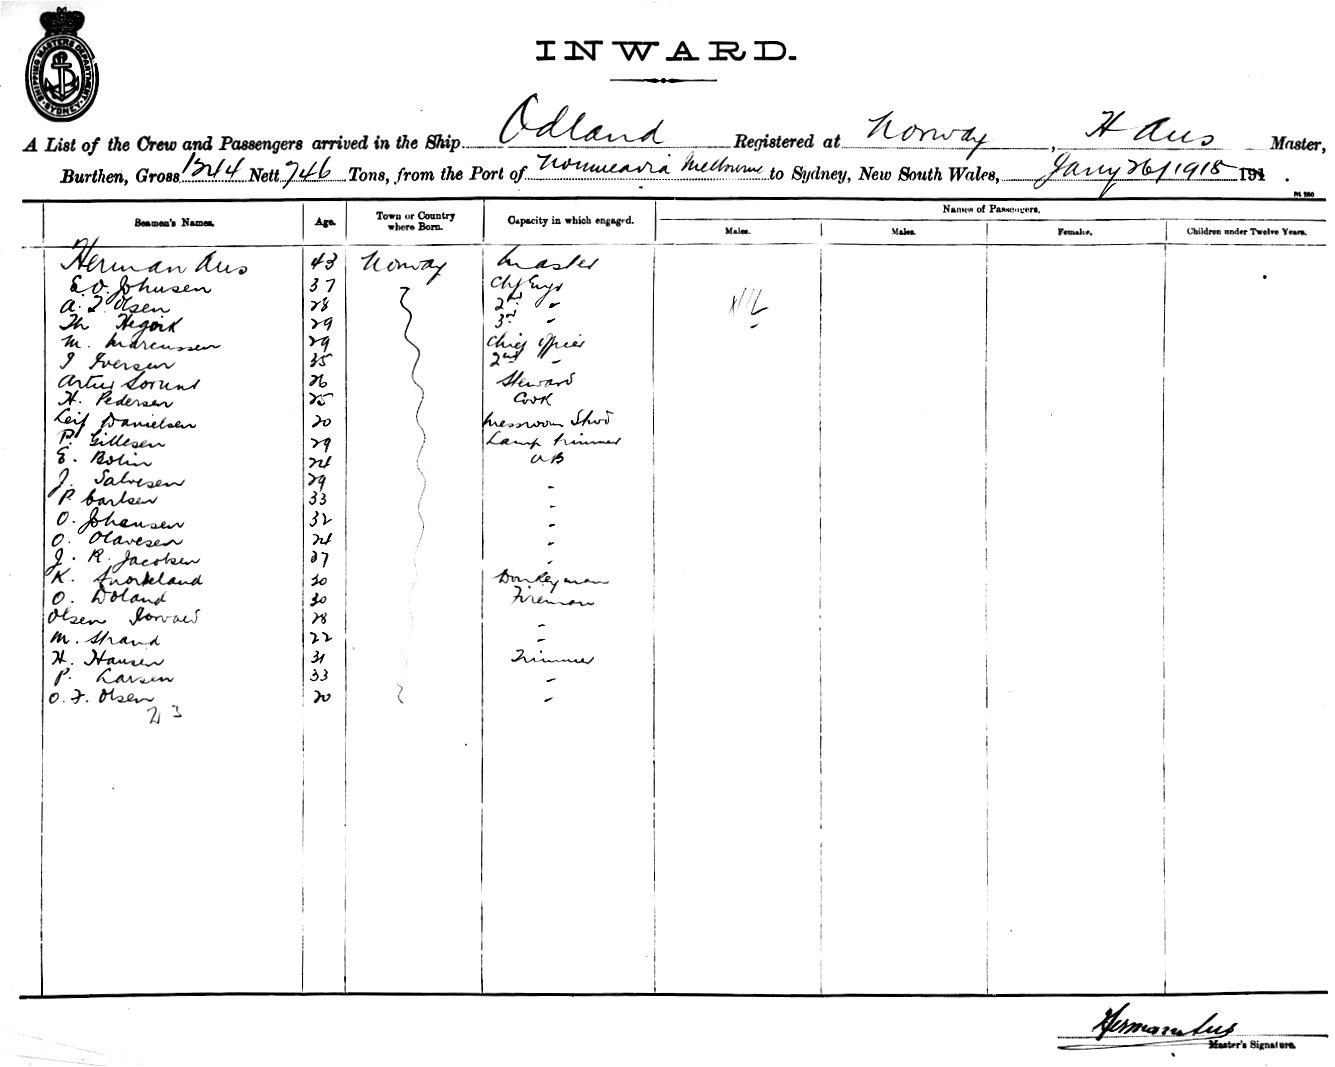 SHIPPING MASTERS DEPARTMENT SYDNEY
INWARD.
A List of the Crew and Passengers arrived in the Ship Odland Registered at Norway, H Aus Master,
Burthen, Gross 1244 Nett 746 Tons, from the Port of Melbourne to Sydney, New South Wales, Jany 26/1915 191 .
Seamen's Names. Age. Town or Country where Born. Capacity in which engaged. Names of Passengers.
Males. Males. Females. Children under Twelve Years.
Herman Aus 43 Norway Master
E O. Johnsen 37 Chf Engr
A. T. Olsen 28 2nd "
Th 29 3rd "
M. Marcussen 29 Chief Officer
I Iversen 35 2nd "
Artur 26 Steward
H. Pedersen 25 Cook
Leif Danielsen 20 Messroom Stwd
P. Gillesen 29 Lamp Trimmer
E. Bolin 24 AB
J. Salvesen 29 "
P. Carlsen 33 "
O. Johansen 32 "
O. Olavesen 24 "
J. R. Jacobsen 37 "
K. 30 Donkeyman
O. Doland 30 Fireman
Olsen 28 "
M. Strand 22 "
H. Hansen 31 Trimmer
P. Larsen 33 "
O. F. Olsen 20 "
23
Herman Aus
Master's Signature.